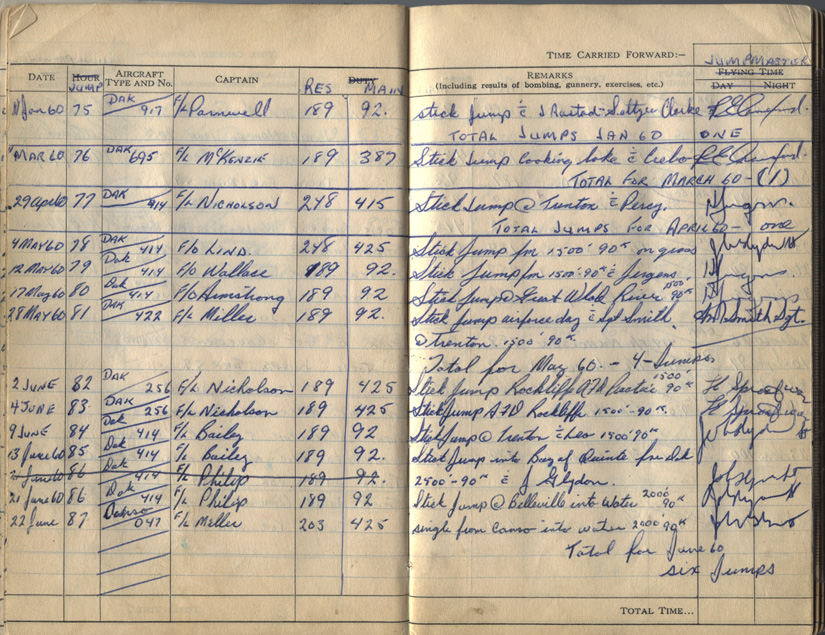 TIME CARRIED FORWARD:—
JUMPMASTER
DATE HOUR JUMP AIRCRAFT TYPE AND No. CAPTAIN RES DUTY MAIN REMARKS (Including results of bombing, gunnery, exercises, etc.) FLYING TIME DAY NIGHT
Jan 60 75 DAK 917 F/L 189 92. stick Jump
TOTAL JUMPS JAN 60 ONE
MAR 60 76 DAK 695 F/L McKENZIE 189 387 Stick Jump Cooking lake
TOTAL FOR MARCH 60 - (1)
29 77 DAK 414 F/L NICHOLSON 248 415 Stick Jump @ Trenton Percy.
TOTAL JUMPS FOR APRIL 60 - one
4 MAY 60 78 DAK 414 F/O LIND. 248 425 Stick Jump for 1500'. 90K on
12 MAY 60 79 Dak 414 F/O Wallace 189 92. Stick Jump for 1500'. 90K Jergens.
17 May 60 80 Dak 414 F/O Armstrong 189 92 Stick Jump @ Great Whale River 1500 90K
28 MAY 60 81 DAK 422 F/L Miller 189 92. Stick Jump airforce day Sgt Smith Smith Sgt.
@ trenton 1500' 90K.
Total for May 60. - 4 - Jumps
2 JUNE 82 DAK 256 F/L Nicholson 189 425 Stick Jump Rockliff 1500' 90K
4 JUNE 83 DAK 256 F/L Nicholson 189 425 Stick Jump Rockliffe 1500'-90K.
9 JUNE 84 Dak 414 F/L Bailey 189 92 Stick Jump @ Trenton Leo 1500' 90K
13 June 60 85 Dak 414 F/L Bailey 189 92. Stick Jump into Bay of Quinte for
June 60 86 Dak 414 F/L Philip 189 92. 2500'-90K J Glydon.
21 June 60 86 Dak 414 F/L Philip 189 92 Stick Jump @ Belleville into Water 2000 90K
22 June 87 047 F/L Miller 203 425 single from Canso into water 2000 90K
Total for June 60
six Jumps
TOTAL TIME...